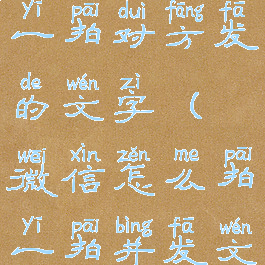 yī pāi duì fāng fā
一拍对方发
de wén zì
的文字（
wēi xìn zěn me pāi
微信怎么拍
yī pāi bìng fā wén
一拍并发文